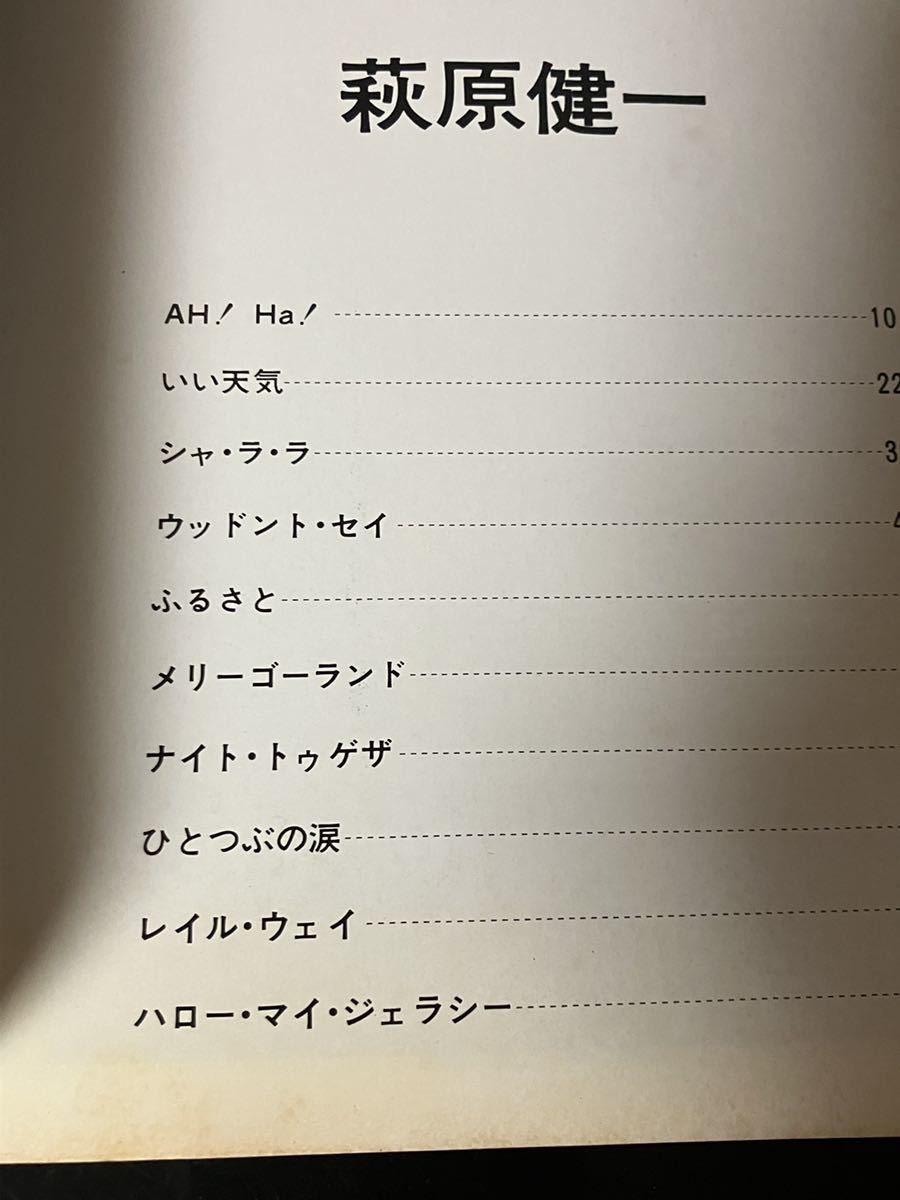 萩原健一
AH! Ha! 10
いい天気 22
シャ・ラ・ラ 3
ウッドント・セイ
ふるさと
メリーゴーランド
ナイト・トゥゲザ
ひとつぶの涙
レイル・ウェイ
ハロー・マイ・ジェラシー